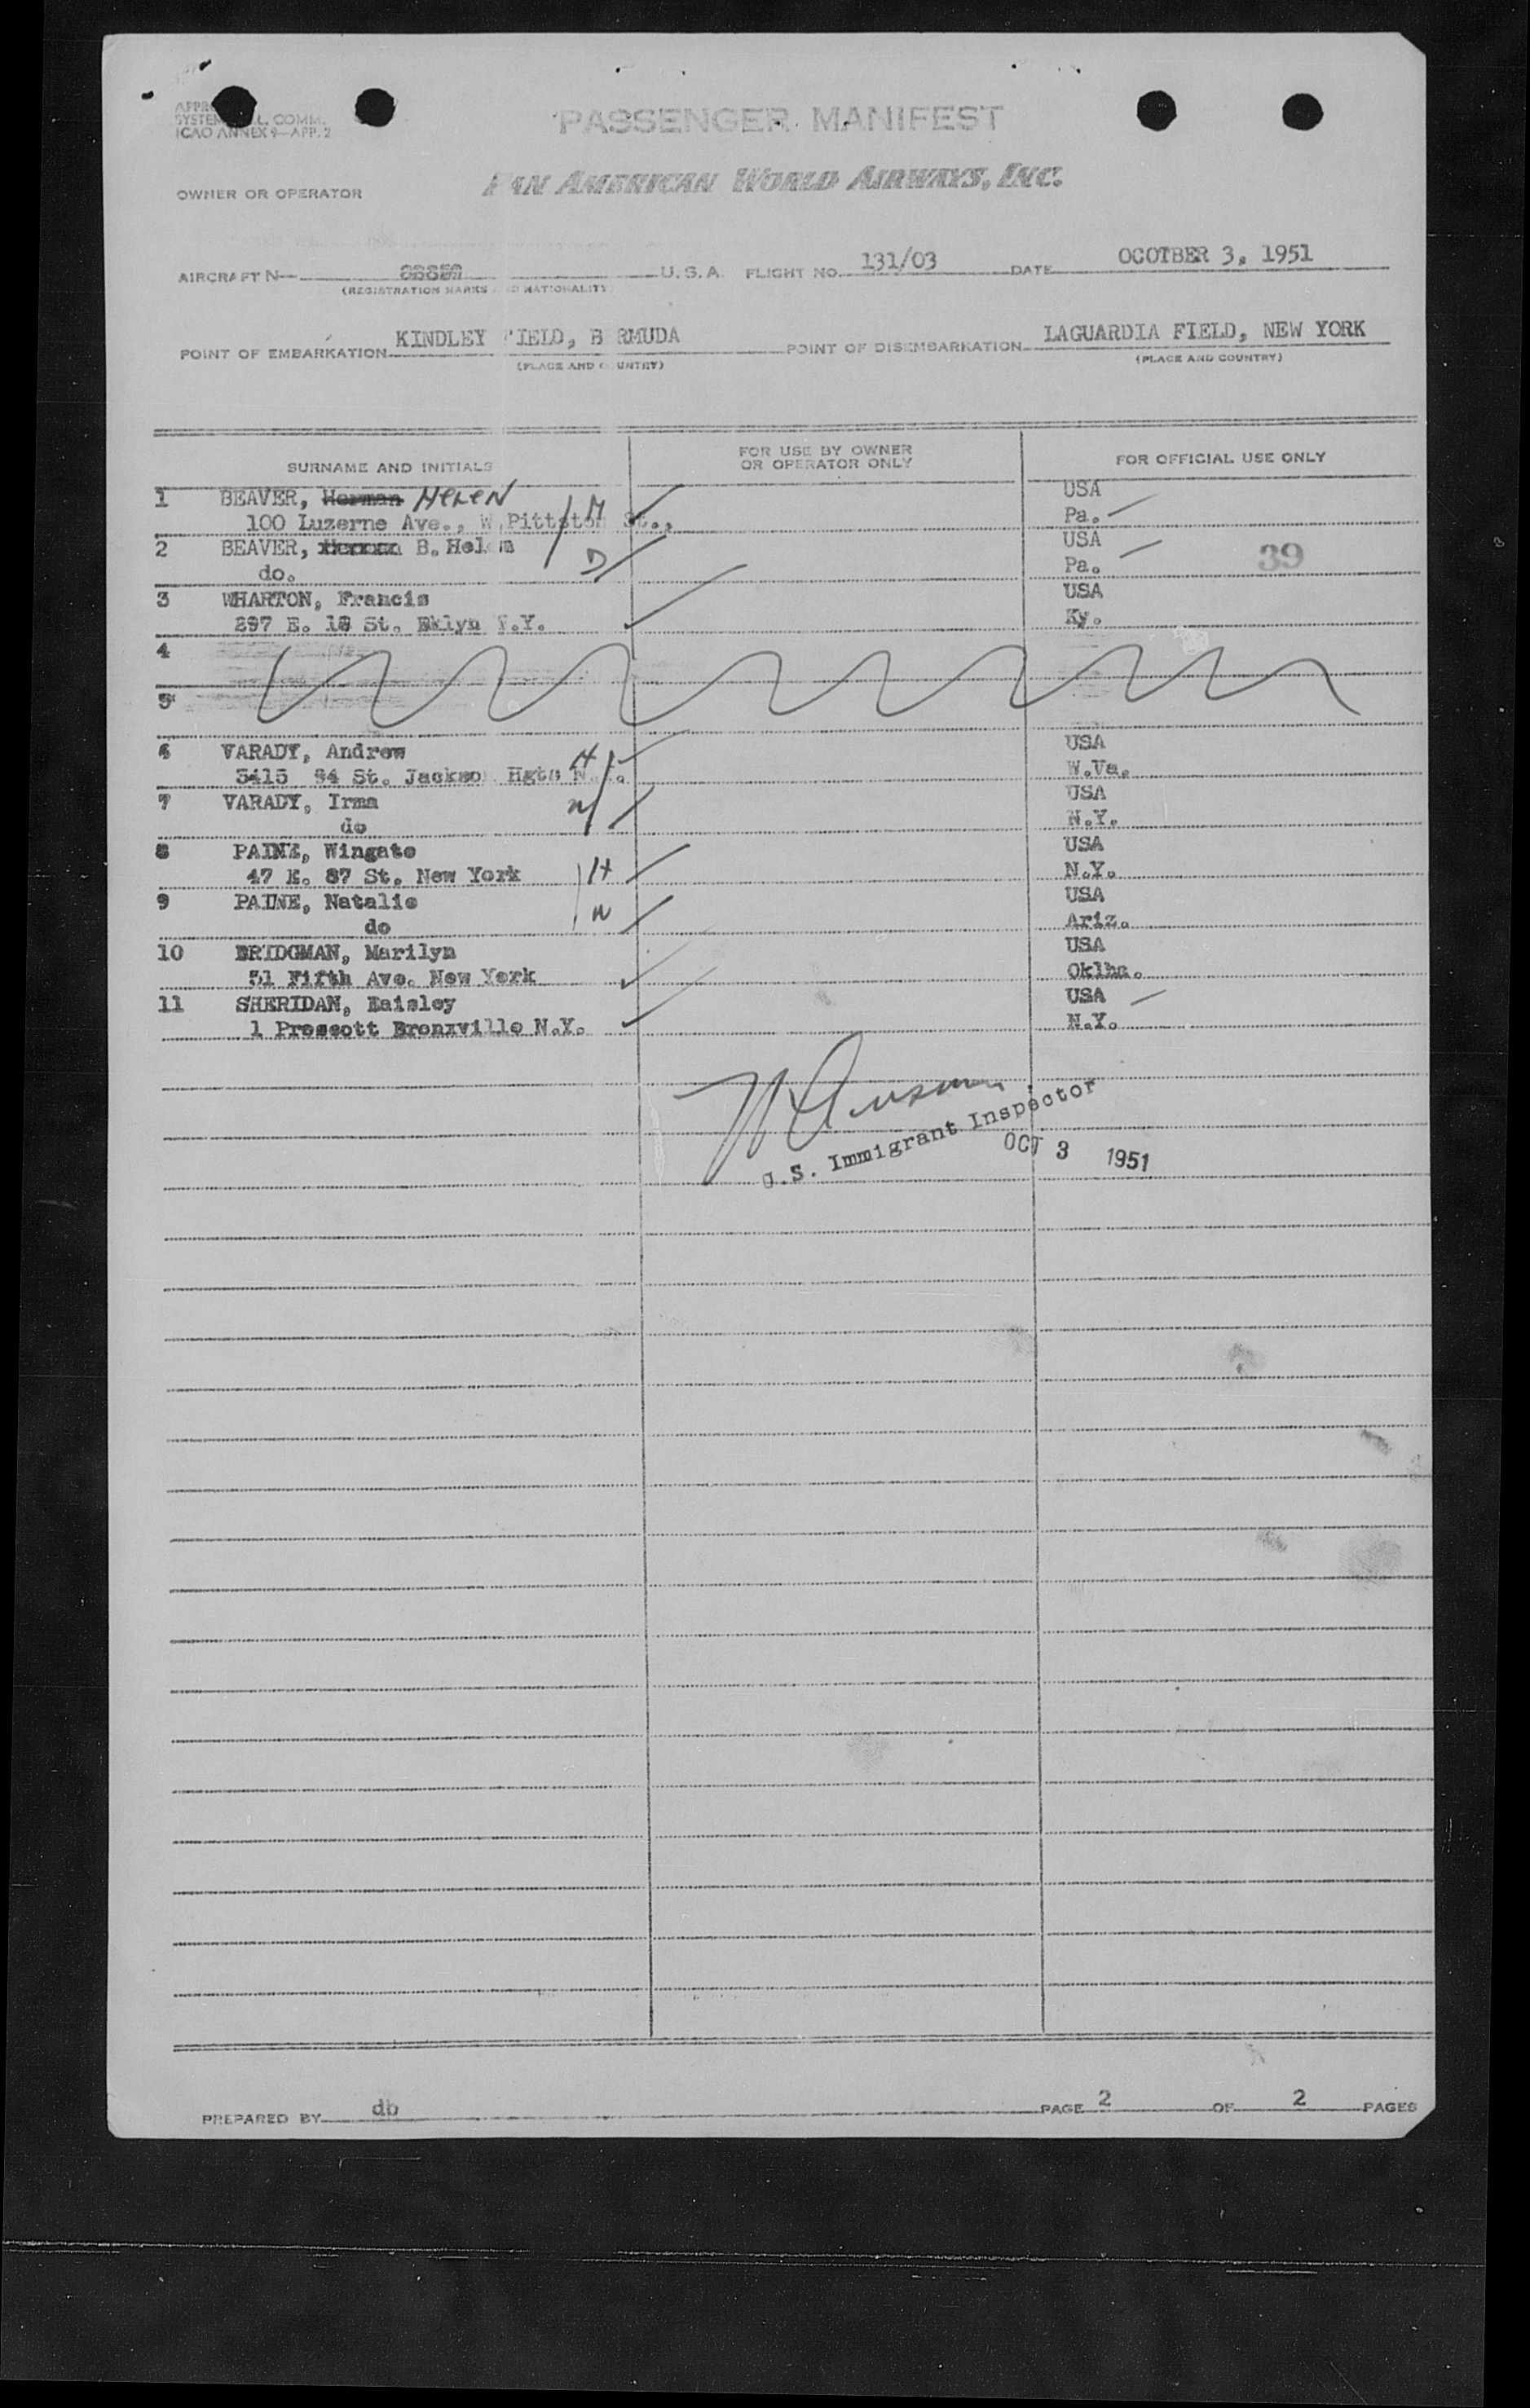 PASSENGER MANIFEST
SYSTEM L. COMM.
ICAO ANNEX 9—APP. 2
OWNER OR OPERATOR
PAN AMERICAN WORLD AIRWAYS, INC.
AIRCRAFT N— U.S.A. FLIGHT NO. 131/03 DATE OCOTBER 3, 1951
(REGISTRATION MARKS AND NATIONALITY)
POINT OF EMBARKATION KINDLEY FIELD, BERMUDA POINT OF DISEMBARKATION LAGUARDIA FIELD, NEW YORK
(PLACE AND COUNTRY) (PLACE AND COUNTRY)
SURNAME AND INITIALS FOR USE BY OWNER OR OPERATOR ONLY FOR OFFICIAL USE ONLY
1 BEAVER, Herman HELEN USA
100 Luzerne Ave., W.Pittston St., M Pa.
2 BEAVER, B. Helen USA
do. D Pa. 39
3 WHARTON, Francis USA
E. St. Bklyn N.Y. Ky.
4
5
6 VARADY, Andrew H USA
3415 94 St. Jackson Hgts N.Y. W.Va.
7 VARADY, Irma W USA
do N.Y.
8 PAINE, Wingate USA
47 E. 87 St. New York H N.Y.
9 PAINE, Natalie USA
do W Ariz.
10 BRIDGMAN, Marilyn USA
51 Fifth Ave. New York Oklha.
11 SHERIDAN, USA
1 Prescott Bronxville N.Y. N.Y.
U.S. Immigrant Inspector
OCT 3 1951
PREPARED BY db PAGE 2 OF 2 PAGES